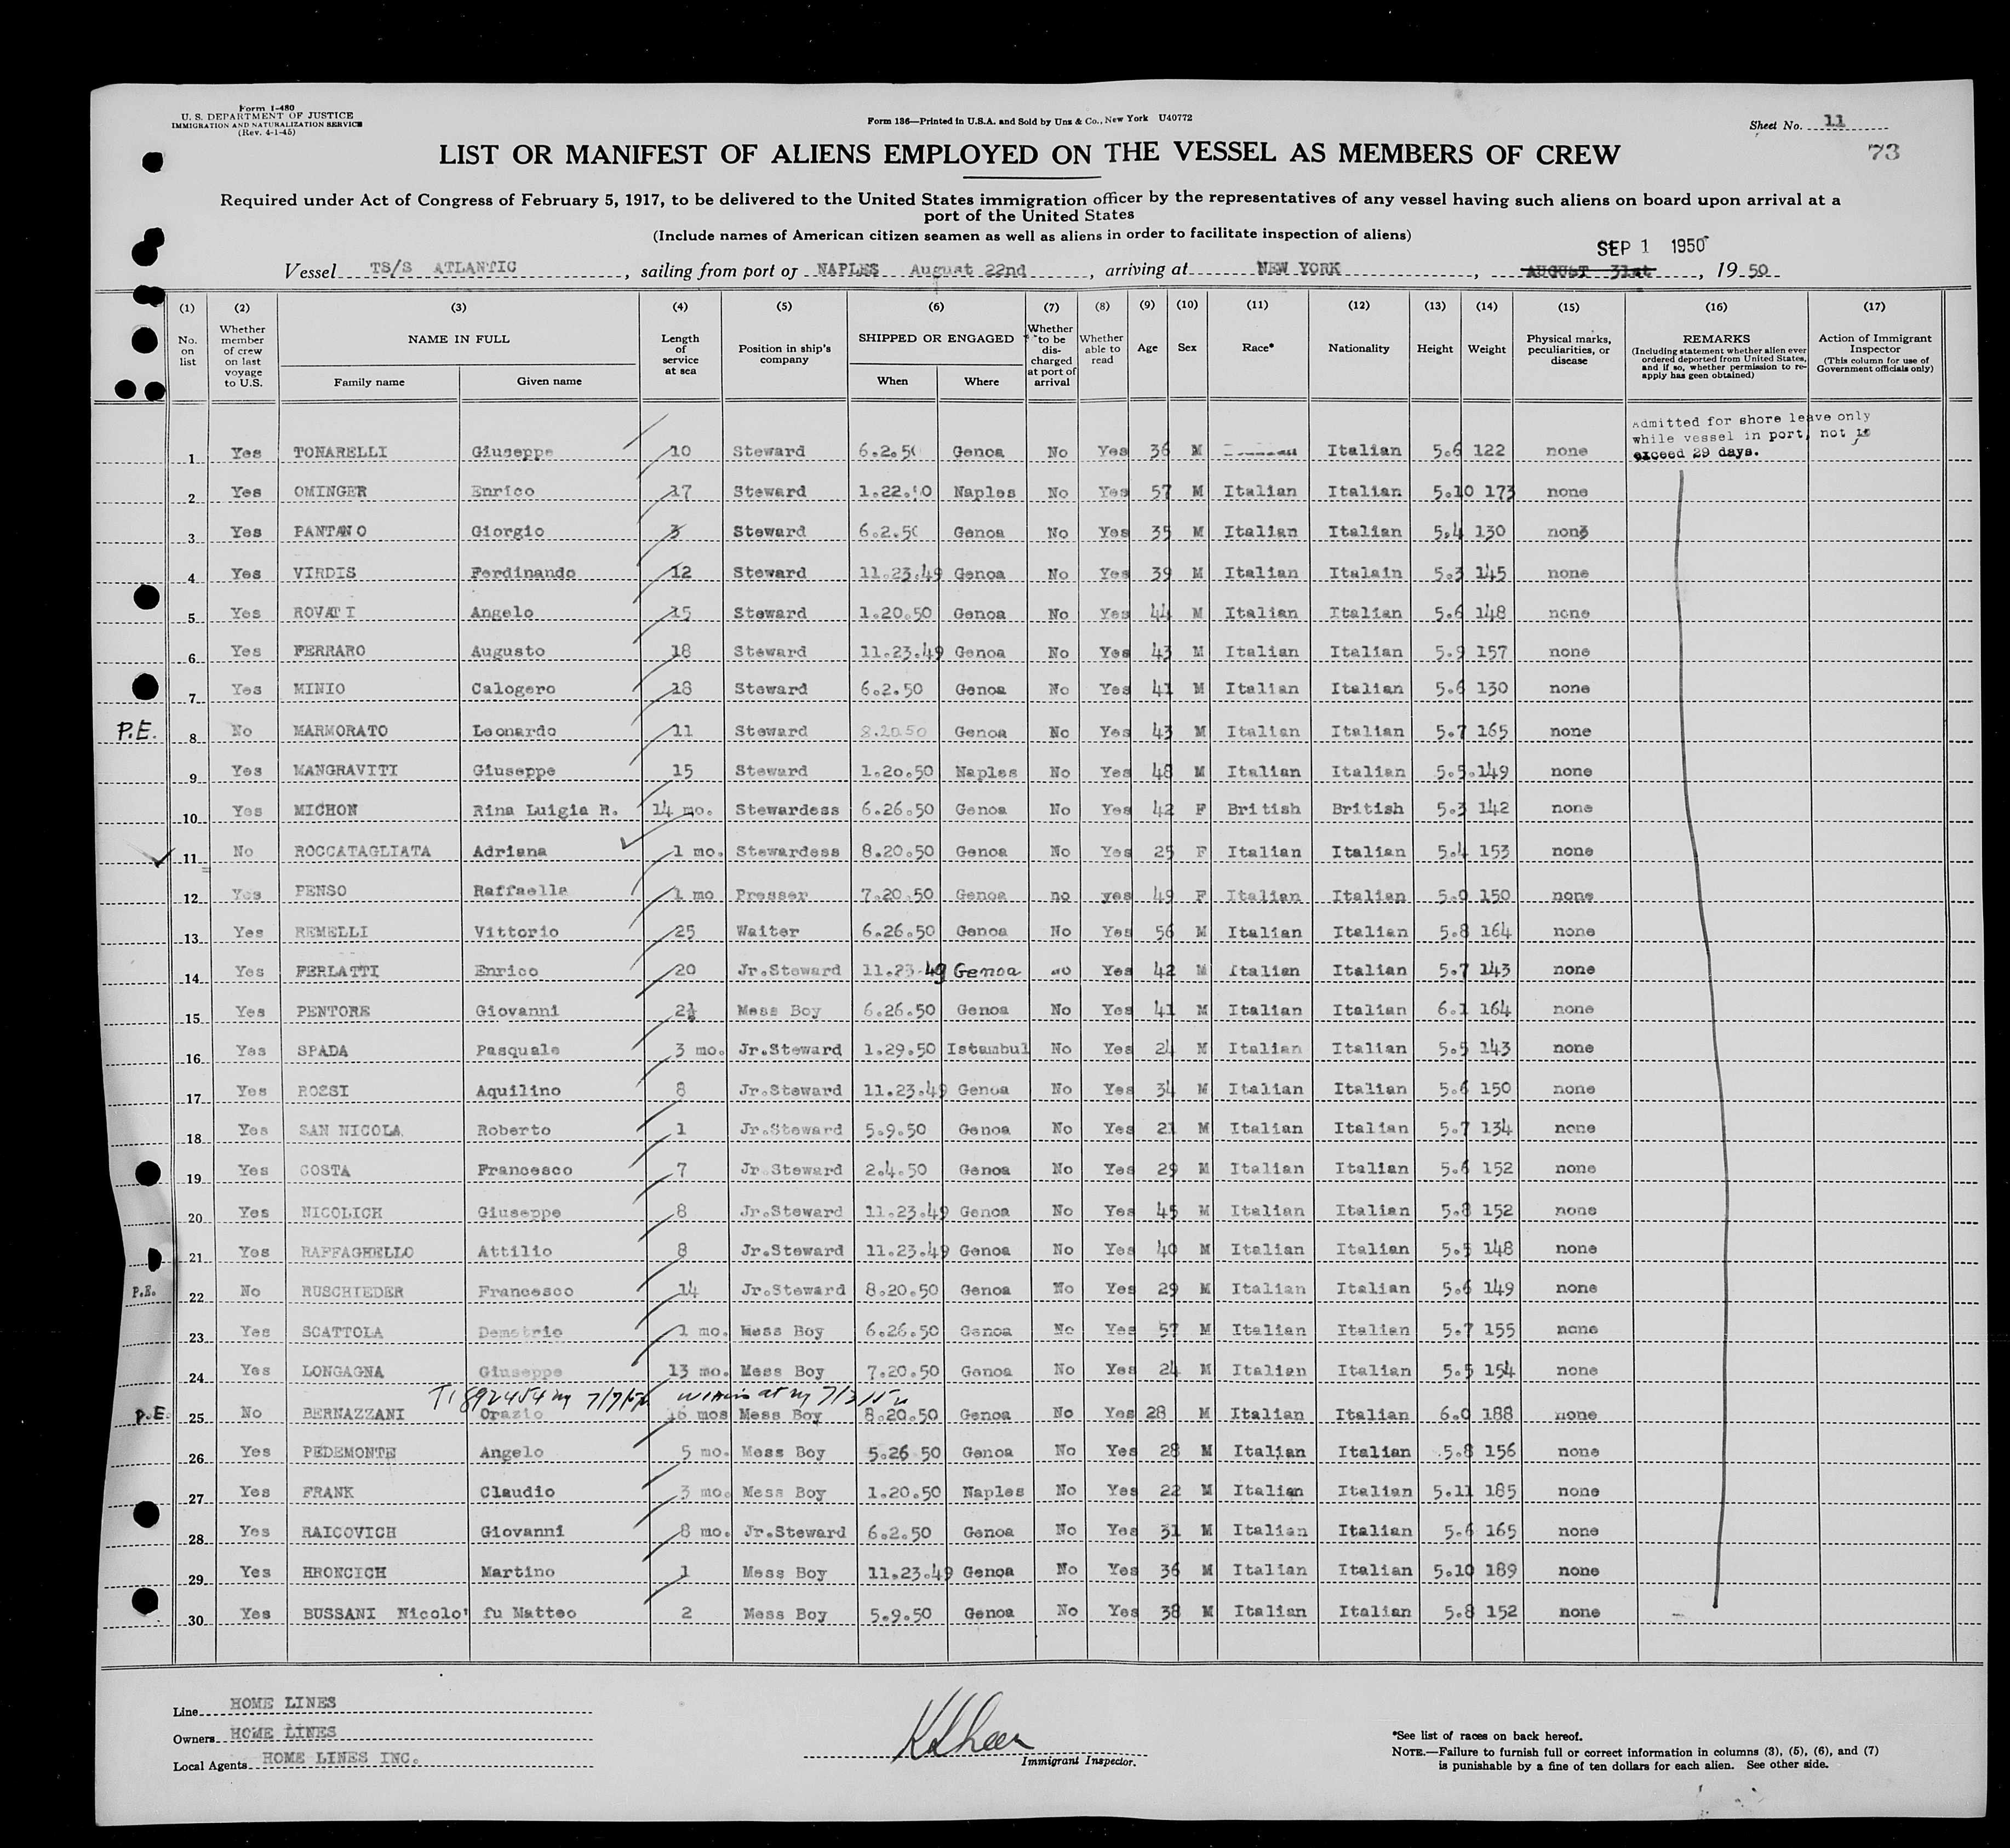 Form I-480
U. S. DEPARTMENT OF JUSTICE
IMMIGRATION AND NATURALIZATION SERVICE
(Rev. 4-1-45)
Form 136—Printed in U.S.A. and Sold by Unz & Co., New York U40772
Sheet No. 11
73
LIST OR MANIFEST OF ALIENS EMPLOYED ON THE VESSEL AS MEMBERS OF CREW
Required under Act of Congress of February 5, 1917, to be delivered to the United States immigration officer by the representatives of any vessel having such aliens on board upon arrival at a
port of the United States
(Include names of American citizen seamen as well as aliens in order to facilitate inspection of aliens)
SEP 1 1950
Vessel TS/S ATLANTIC, sailing from port of NAPLES August 22nd, arriving at NEW YORK, AUGUST 31st, 1950
(1) (2) (3) (4) (5) (6) (7) (8) (9) (10) (11) (12) (13) (14) (15) (16) (17)
No. on list
Whether member of crew on last voyage to U.S.
NAME IN FULL
Family name
Given name
Length of service at sea
Position in ship's company
SHIPPED OR ENGAGED
When
Where
Whether to be discharged at port of arrival
Whether able to read
Age
Sex
Race*
Nationality
Height
Weight
Physical marks, peculiarities, or disease
REMARKS
(Including statement whether alien ever ordered deported from United States, and if so, whether permission to re-apply has geen obtained)
Action of Immigrant Inspector
(This column for use of Government officials only)
Admitted for shore leave only
while vessel in port, not to
exceed 29 days.
1 Yes TONARELLI Giuseppe 10 Steward 6.2.50 Genoa No Yes 36 M Italian 5.6 122 none
2 Yes OMINGER Enrico 17 Steward 1.22.50 Naples No Yes 57 M Italian Italian 5.10 173 none
3 Yes PANTANO Giorgio 3 Steward 6.2.50 Genoa No Yes 35 M Italian Italian 5.4 130 non3
4 Yes VIRDIS Ferdinando 12 Steward 11.23.49 Genoa No Yes 39 M Italian Italain 5.3 145 none
5 Yes ROVATI Angelo 15 Steward 1.20.50 Genoa No Yes 44 M Italian Italian 5.6 148 none
6 Yes FERRARO Augusto 18 Steward 11.23.49 Genoa No Yes 43 M Italian Italian 5.9 157 none
7 Yes MINIO Calogero 18 Steward 6.2.50 Genoa No Yes 41 M Italian Italian 5.6 130 none
P.E. 8 No MARMORATO Leonardo 11 Steward 8.20.50 Genoa No Yes 43 M Italian Italian 5.7 165 none
9 Yes MANGRAVITI Giuseppe 15 Steward 1.20.50 Naples No Yes 48 M Italian Italian 5.5. 149 none
10 Yes MICHON Rina Luigia R. 14 mo. Stewardess 6.26.50 Genoa No Yes 42 F British British 5.3 142 none
11 No ROCCATAGLIATA Adriana 1 mo. Stewardess 8.20.50 Genoa No Yes 25 F Italian Italian 5.4 153 none
12 Yes PENSO Raffaella 1 mo Presser 7.20.50 Genoa no yes 49 F Italian Italian 5.0 150 none
13 Yes REMELLI Vittorio 25 Waiter 6.26.50 Genoa No Yes 56 M Italian Italian 5.8 164 none
14 Yes FERLATTI Enrico 20 Jr.Steward 11.23.49 Genoa No Yes 42 M Italian Italian 5.7 143 none
15 Yes PENTORE Giovanni 2½ Mess Boy 6.26.50 Genoa No Yes 41 M Italian Italian 6.1 164 none
16 Yes SPADA Pasquale 3 mo. Jr.Steward 1.29.50 Istambul No Yes 24 M Italian Italian 5.5 143 none
17 Yes ROSSI Aquilino 8 Jr.Steward 11.23.49 Genoa No Yes 34 M Italian Italian 5.6 150 none
18 Yes SAN NICOLA Roberto 1 Jr.Steward 5.9.50 Genoa No Yes 21 M Italian Italian 5.7 134 none
19 Yes COSTA Francesco 7 Jr Steward 2.4.50 Genoa No Yes 29 M Italian Italian 5.6 152 none
20 Yes NICOLICH Giuseppe 8 Jr.Steward 11.23.49 Genoa No Yes 45 M Italian Italian 5.8 152 none
21 Yes RAFFAGHELLO Attilio 8 Jr.Steward 11.23.49 Genoa No Yes 40 M Italian Italian 5.5 148 none
P.E. 22 No RUSCHIEDER Francesco 14 Jr.Steward 8.20.50 Genoa No Yes 29 M Italian Italian 5.6 149 none
23 Yes SCATTOLA Demetrio 1 mo. Mess Boy 6.26.50 Genoa No Yes 57 M Italian Italian 5.7 155 none
24 Yes LONGAGNA Giuseppe 13 mo. Mess Boy 7.20.50 Genoa No Yes 24 M Italian Italian 5.5 154 none
P.E. 25 No BERNAZZANI Orazio 16 mos Mess Boy 8.20.50 Genoa No Yes 28 M Italian Italian 6.0 188 none
26 Yes PEDEMONTE Angelo 5 mo. Mess Boy 5.26 50 Genoa No Yes 28 M Italian Italian 5.8 156 none
27 Yes FRANK Claudio 3 mo. Mess Boy 1.20.50 Naples No Yes 22 M Italian Italian 5.11 185 none
28 Yes RAICOVICH Giovanni 8 mo. Jr.Steward 6.2.50 Genoa No Yes 31 M Italian Italian 5.6 165 none
29 Yes HRONCICH Martino 1 Mess Boy 11.23.49 Genoa No Yes 36 M Italian Italian 5.10 189 none
30 Yes BUSSANI Nicolo' fu Matteo 2 Mess Boy 5.9.50 Genoa No Yes 38 M Italian Italian 5.8 152 none
Line HOME LINES
Owners HOME LINES
Local Agents HOME LINES INC.
Immigrant Inspector.
*See list of races on back hereof.
NOTE.—Failure to furnish full or correct information in columns (3), (5), (6), and (7)
is punishable by a fine of ten dollars for each alien. See other side.